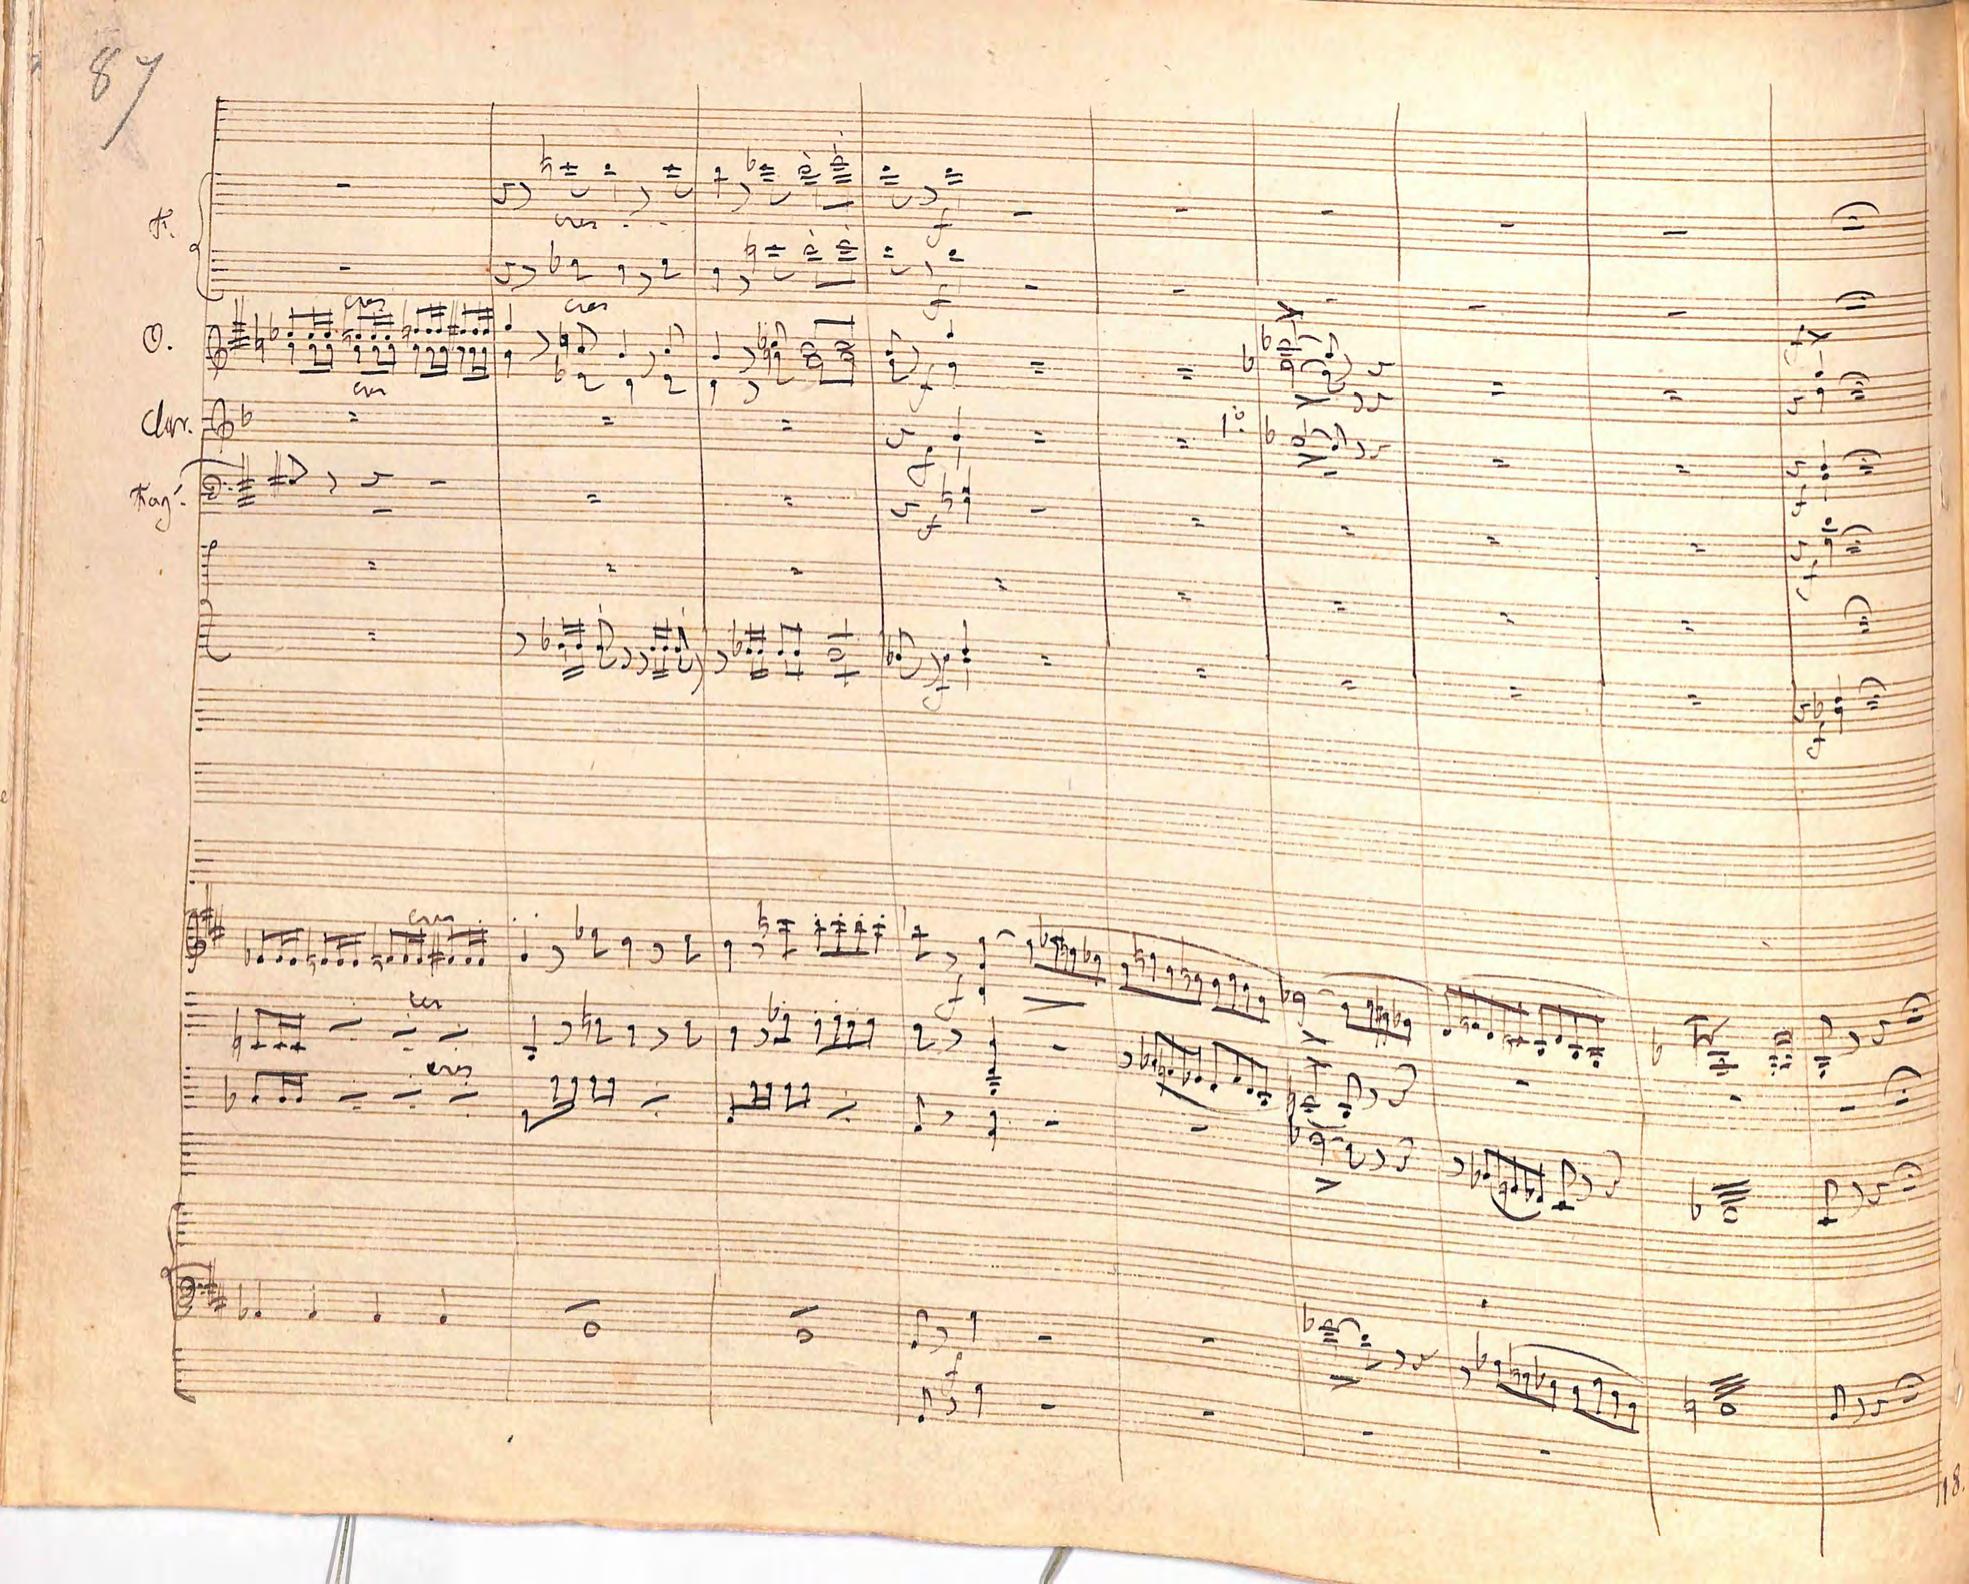 87
Fl.
cres - - -
f
cres
f
O.
cres
cres
f
f
Clar.
f
1º
f
Fag.
f
f
f
f
cres
f
cres
cres
f
18.